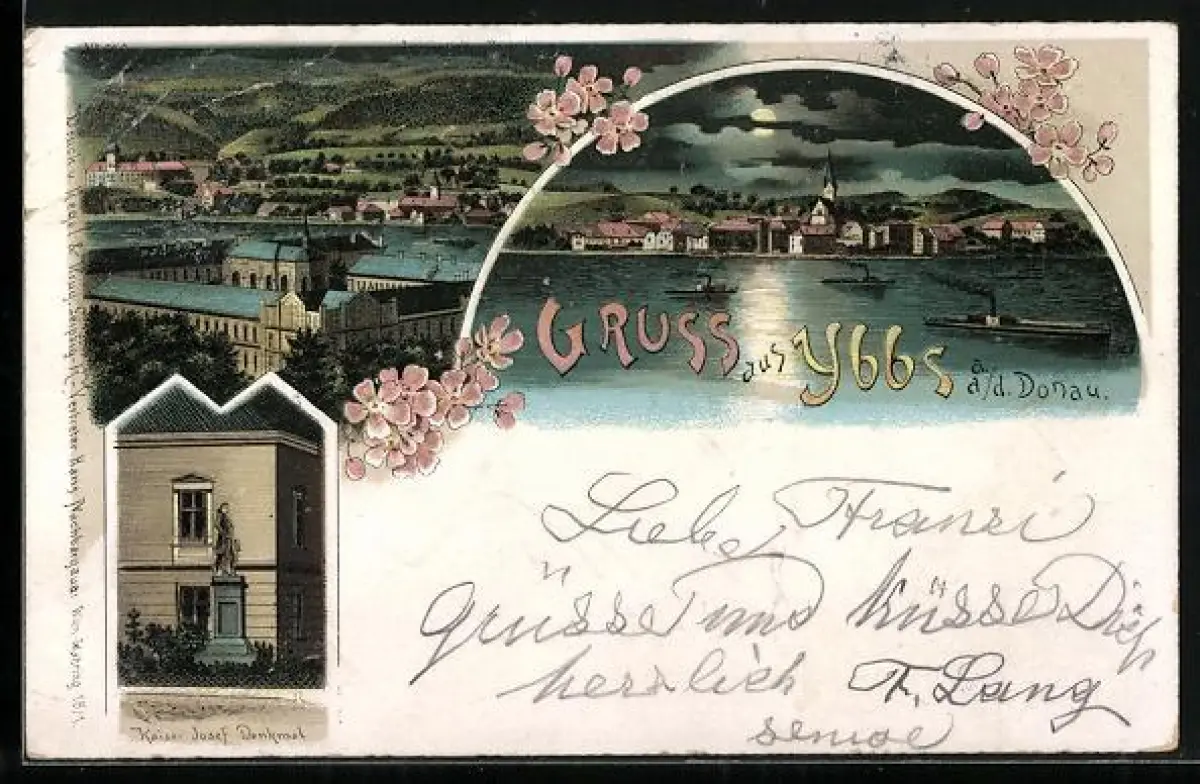 GRUSS aus Ybbs a/d. Donau.
Liebe Franzi
grüsse und küsse Dich
herzlich F. Lang
senior
Kaiser Josef Denkmal